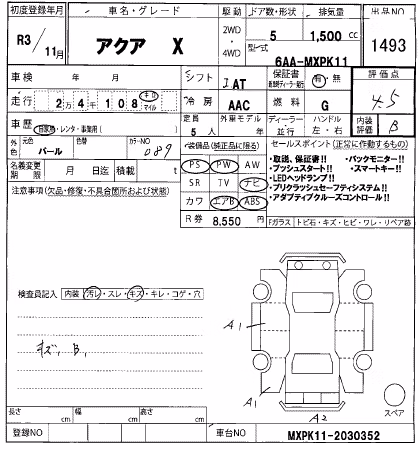 初度登録年月 車名・グレード 駆動 ドア数・形状 排気量 出品NO
R3/11月 アクア X 2WD・4WD 5 1,500 cc 1493
型式 6AA-MXPK11
車検 年 月 シフト IAT 保証書 有・無 評価点
走行 2万4千108 キロ マイル 冷房 AAC 燃料 G 4.5
車歴 自家用・レンタ・事業用( ) 定員 5人 外車モデル 年 ディーラー・並行 ハンドル 左・右 内装評価 B
外色 元色 パール 色替 カラーNO 089
装備品(純正品に限る) セールスポイント(正常に作動するもの)
名義変更期限 月 日迄 積載 t
PS PW AW
・取説、保証書!! ・バックモニター!!
・プッシュスタート!! ・スマートキー!!
注意事項(欠品・修復・不具合箇所および状態)
SR TV ナビ
・LEDヘッドランプ!!
・プリクラッシュセーフティシステム!!
カワ エアB ABS
・アダプティブクルーズコントロール!!
R券 8,550 円
Fガラス トビ石・キズ・ヒビ・ワレ・リペア跡
検査員記入 内装 汚レ・スレ・キズ・キレ・コゲ・穴
キズ, B,
A1
A1
A2
スペア
長さ cm 幅 cm 高さ cm
登録NO 車台NO MXPK11-2030352